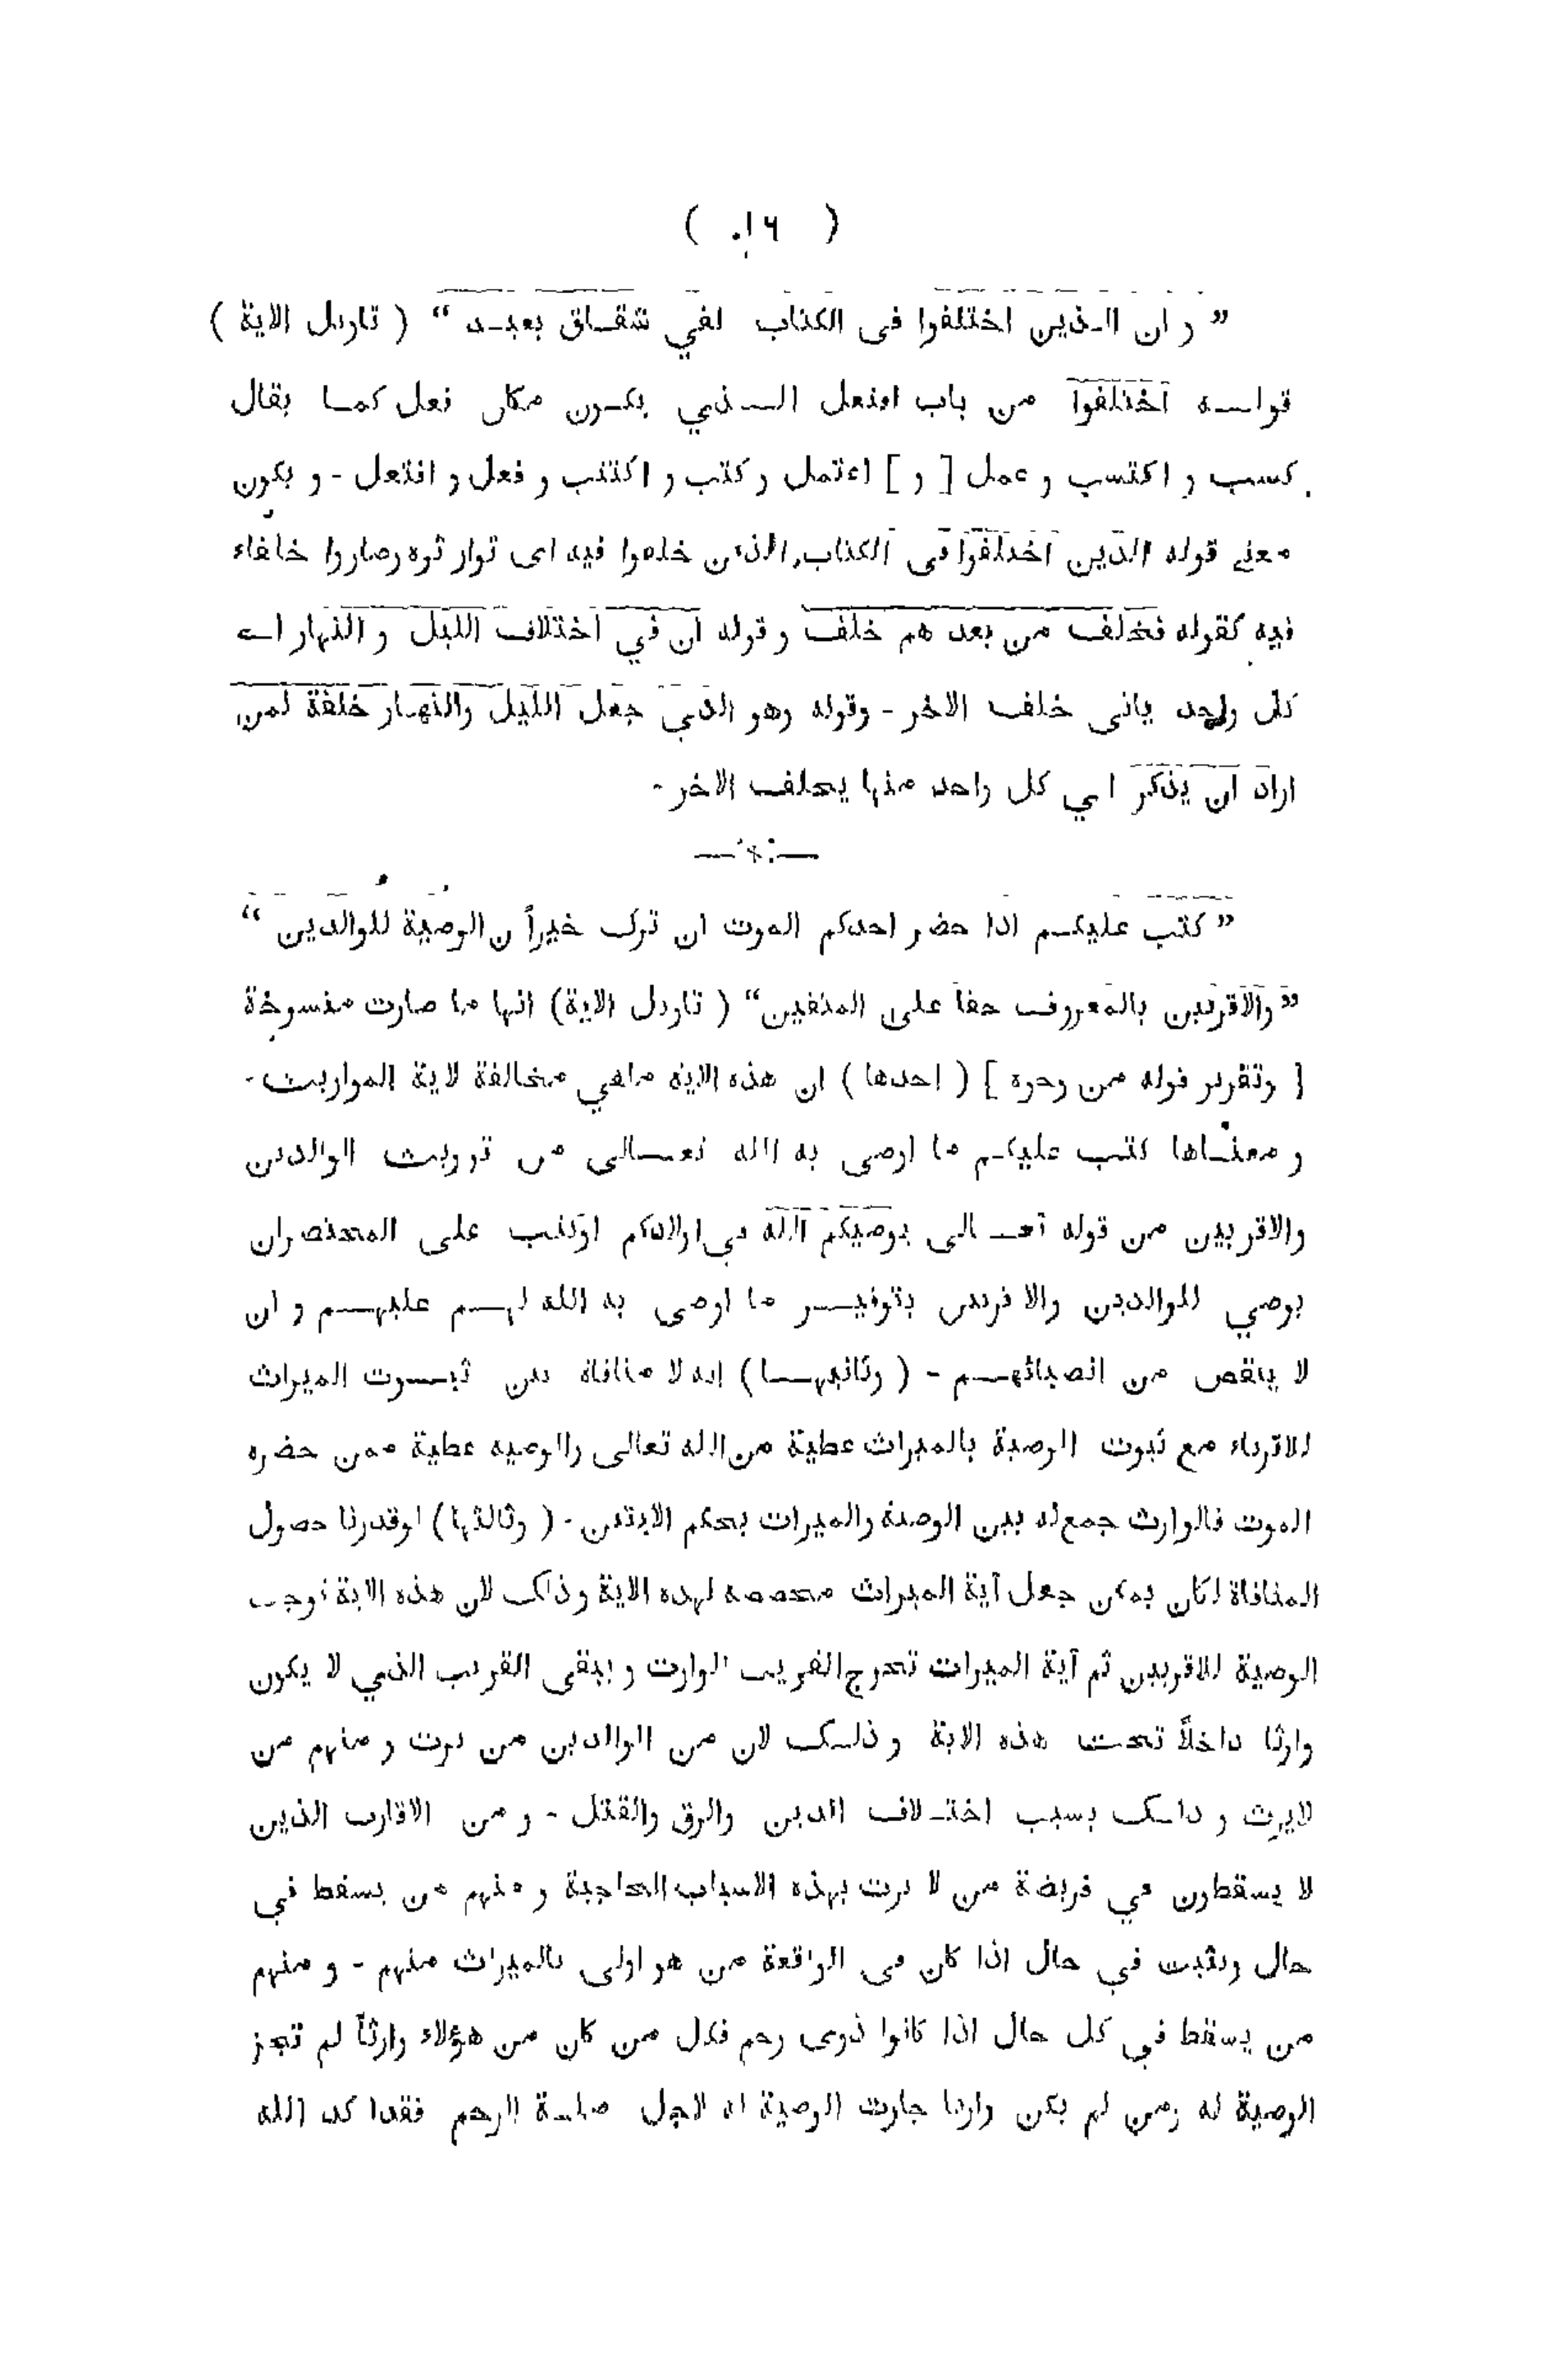 ( ١٦ )
” و ان الذين اختلفوا فى الكتاب لفي شقاق بعيد “ ( تاويل الاية )
قوله اختلفوا من باب افتعل الذي يكون مكان فعل كما يقال
كسب و اكتسب و عمل [ و ] اعتمل و كتب و اكتتب و فعل و افتعل - و يكون
معنى قوله الذين اختلفوا فى الكتاب الذين خلفوا فيه اى توارثوه وصاروا خلفاء
فيه كقوله فخلف من بعد هم خلف و قوله ان في اختلاف الليل و النهار اے
كل واحد ياتى خلف الاخر - وقوله وهو الذي جعل الليل والنهار خلفة لمن
اراد ان يذكر اي كل واحد منها يخلف الاخر -
” كتب عليكم اذا حضر احدكم الموت ان ترك خيراً ن الوصية للوالدين “
” والاقربين بالمعروف حقا على المتقين “ ( تاويل الاية ) انها ما صارت منسوخة
[ وتقرير قوله من وجوه ] ( احدها ) ان هذه الاية ماهي مخالفة لاية المواريث -
و معناها كتب عليكم ما اوصى به الله تعالى من توريث الوالدين
والاقربين من قوله تعالى يوصيكم الله في اولادكم اوكتب على المحتضر ان
يوصي للوالدين والاقربين بتوفير ما اوصى به الله لهم عليهم و ان
لا ينقص من انصبائهم - ( وثانيها ) انه لا منافاة بين ثبوت الميراث
للاقرباء مع ثبوت الوصية بالميراث عطية من الله تعالى والوصية عطية ممن حضره
الموت فالوارث جمع له بين الوصية والميراث بحكم الايتين - ( وثالثها ) لوقدرنا حصول
المنافاة لكان يمكن جعل آية الميراث مخصصه لهذه الاية و ذلك لان هذه الاية توجب
الوصية للاقربين ثم آية الميراث تخرج القريب الوارث و يبقى القريب الذي لا يكون
وارثا داخلاً تحت هذه الاية و ذلك لان من الوالدين من يرث و منهم من
لايرث و ذلك بسبب اختلاف الدين والرق والقتل - و من الاقارب الذين
لا يسقطون في فريضة من لا يرث بهذه الاسباب الحاجبة و منهم من يسقط في
حال ويثبت في حال اذا كان فى الواقعة من هو اولى بالميراث منهم - و منهم
من يسقط في كل حال اذا كانوا ذوى رحم فكل من كان من هؤلاء وارثاً لم تجز
الوصية له ومن لم يكن وارثا جازت الوصية له لاجل صلة الرحم فقد اكد الله